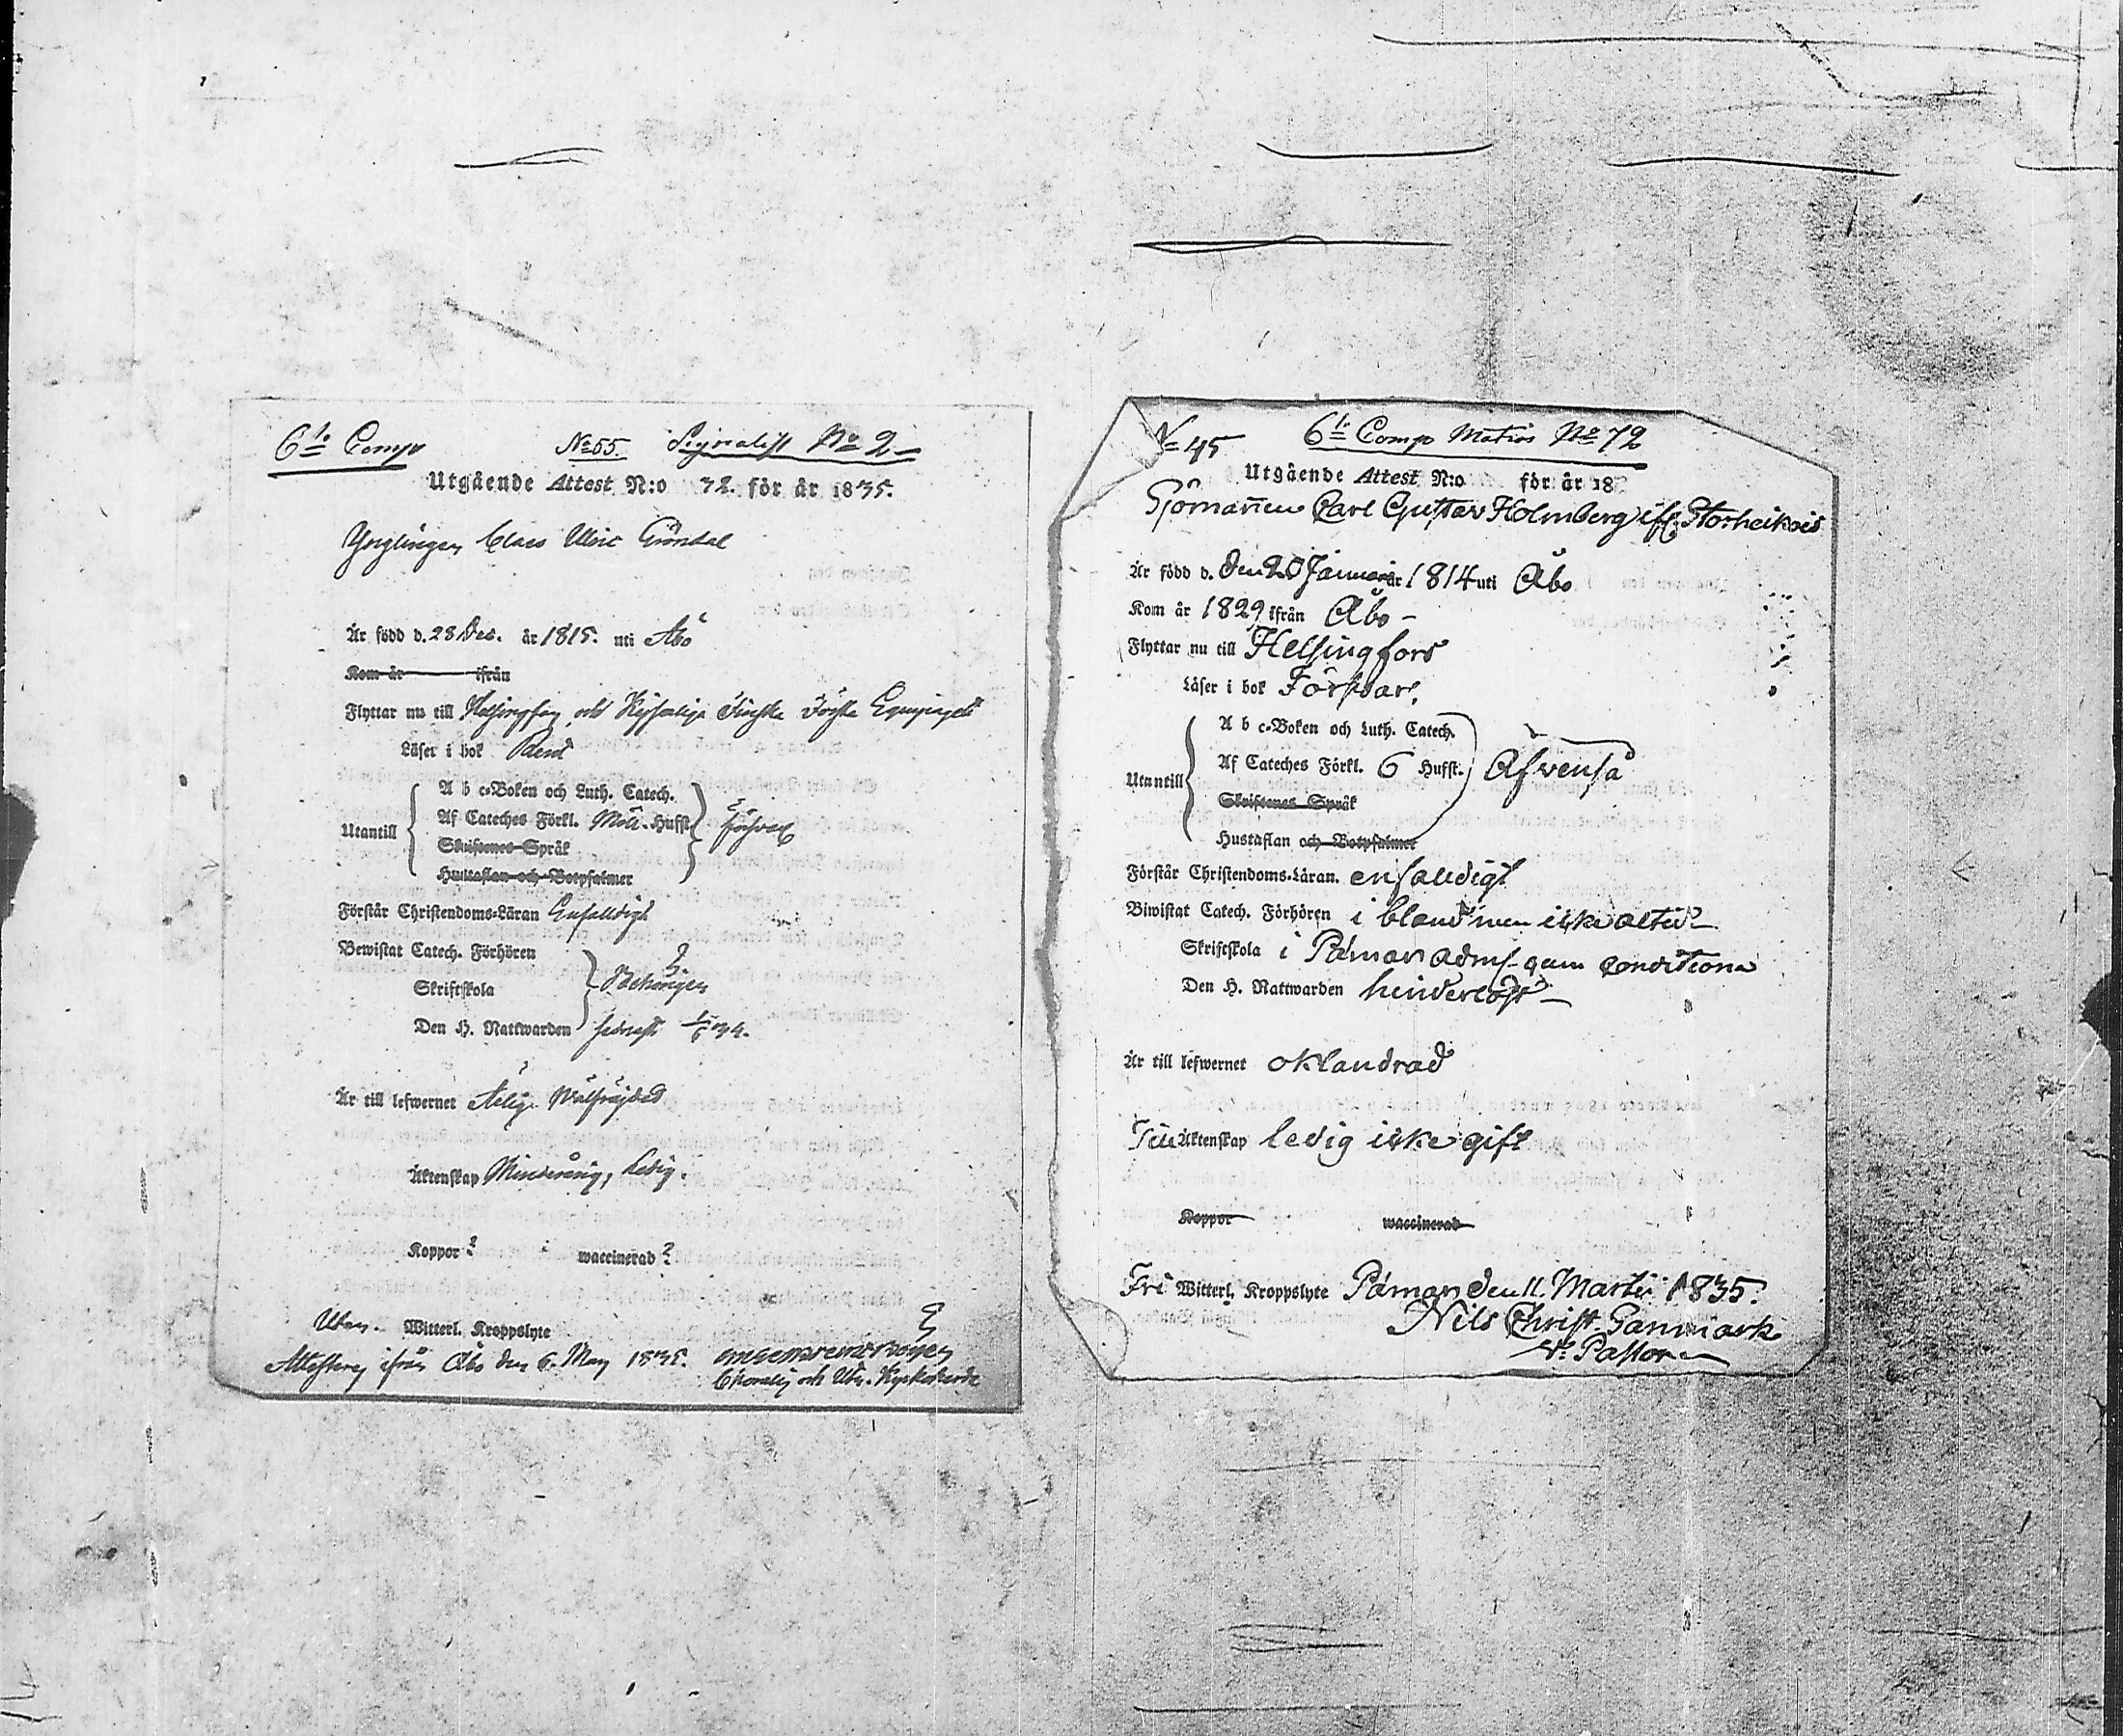 6te Comp No 55. Signalist No 2
Utgående Attest N:o 32. för år 1835.
Ynglingen Claes Ulric Gröndal
Är född d. 28 Dec. år 1815. uti Åbo
Kom år ifrån
Flyttar nu till Helsingfors och Kejserliga Finska Första Equipaget
Läser i bok Rent
Utantill
A b c-Boken och Luth. Catech.
Af Cateches Förkl. Möll. Hufst.
Skriftenes Språk
Hustaflan och Botpsalmer
försvarl.
Förstår Christendoms-Läran Enfalldigt
Bewistat Catech. Förhören
Skriftskola
Behörigen
Den H. Nattwarden sednast 1/6 34.
Är till lefwernet Ärlig. Wälfräjdad
Äktenskap Minderårig, Ledig.
Koppor ? waccinerad ?
Utan. Witterl. Kroppslyte
Attesterar ifrån Åbo den 6. May 1835.
och Utn. Kyrkoherde
No 45 6te Comp Matros No 72
Utgående Attest N:o för år 18
Sjömannen Carl Gustav Holmberg ifr. Storheikois
Är född d. den 20 Januari år 1814 uti Åbo
Kom år 1829 ifrån Åbo -
Flyttar nu till Helsingfors
Läser i bok Försvarl.
Utantill
A b c-Boken och Luth. Catech.
Af Cateches Förkl. 6 Hufst.
Skriftenes Språk
Hustaflan och Botpsalmer
Äfvenså
Förstår Christendoms-Läran. enfaldigt
Biwistat Catech. Förhören i bland men icke altid
Skriftskola i Pämar adms. cum conditione
Den H. Nattwarden hinderlöst
Är till lefwernet oklandrad
Till Äktenskap ledig icke gift
Koppor waccinerad
Fri Witterl. Kroppslyte Pämar den 11. Martii 1835.
Nils Christ. Ganmark
V. Pastor